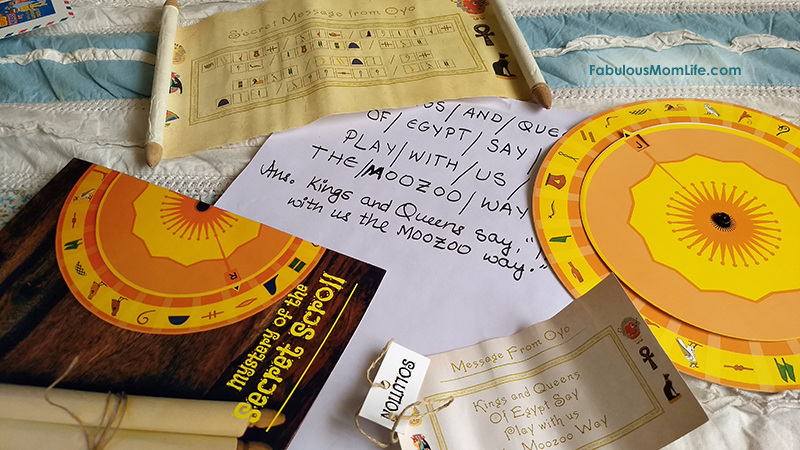 Secret Message from Oyo
FabulousMomLife.com
GS / AND / QUE
OF / EGYPT / SAY /
PLAY / WITH / US /
THE / MOOZOO / WAY
Ans. Kings and Queens say, "
with us the MOOZOO way."
J
R
Mystery of the
Secret Scroll
SOLUTION
Message From Oyo
Kings and Queens
Of Egypt Say
Play with us
Moozoo Way